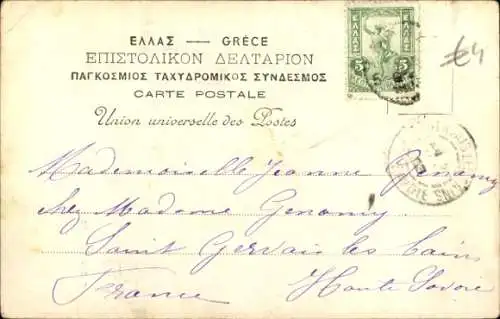 ΕΛΛΑΣ — GRÈCE
ΕΠΙΣΤΟΛΙΚΟΝ ΔΕΛΤΑΡΙΟΝ
ΠΑΓΚΟΣΜΙΟΣ ΤΑΧΥΔΡΟΜΙΚΟΣ ΣΥΝΔΕΣΜΟΣ
CARTE POSTALE
Union universelle des Postes
ΕΛΛΑΣ
5 5
€4
Mademoiselle Jeanne Genamy
chez Madame Genamy
Saint Gervais les Bains
France Haute Savoie